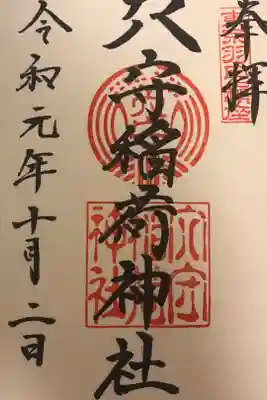 奉拝
穴守稲荷神社
穴守
稲荷
神社
令和元年十月二日